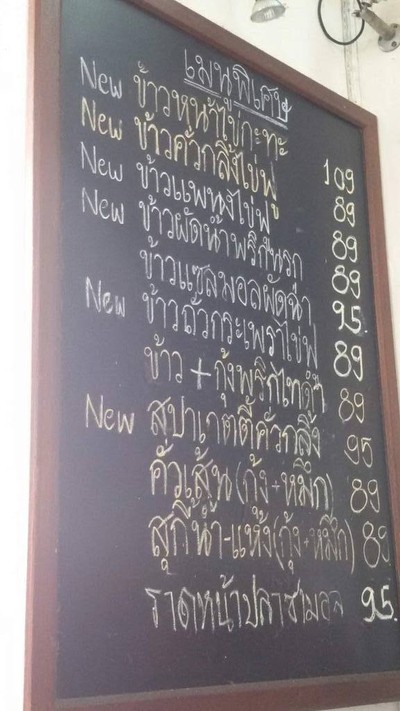 เมนูพิเศษ
New ข้าวหน้าไข่กะทะ 109
New ข้าวคั่วกลิ้งไข่ฟู 89
New ข้าวแพนงไข่ฟู 89
New ข้าวผัดน้ำพริกนรก 89
ข้าวแซลมอลผัดฉ่า 95.
New ข้าวถั่วกระเพราไข่ฟู 89
ข้าว + กุ้งพริกไทดำ 89
New สปาเกตตี้คั่วกลิ้ง 95
คั่วเส้น (กุ้ง+หมึก) 89
สุกี้น้ำ-แห้ง(กุ้ง+หมึก) 89
ราดหน้าปลาซามอล 95.